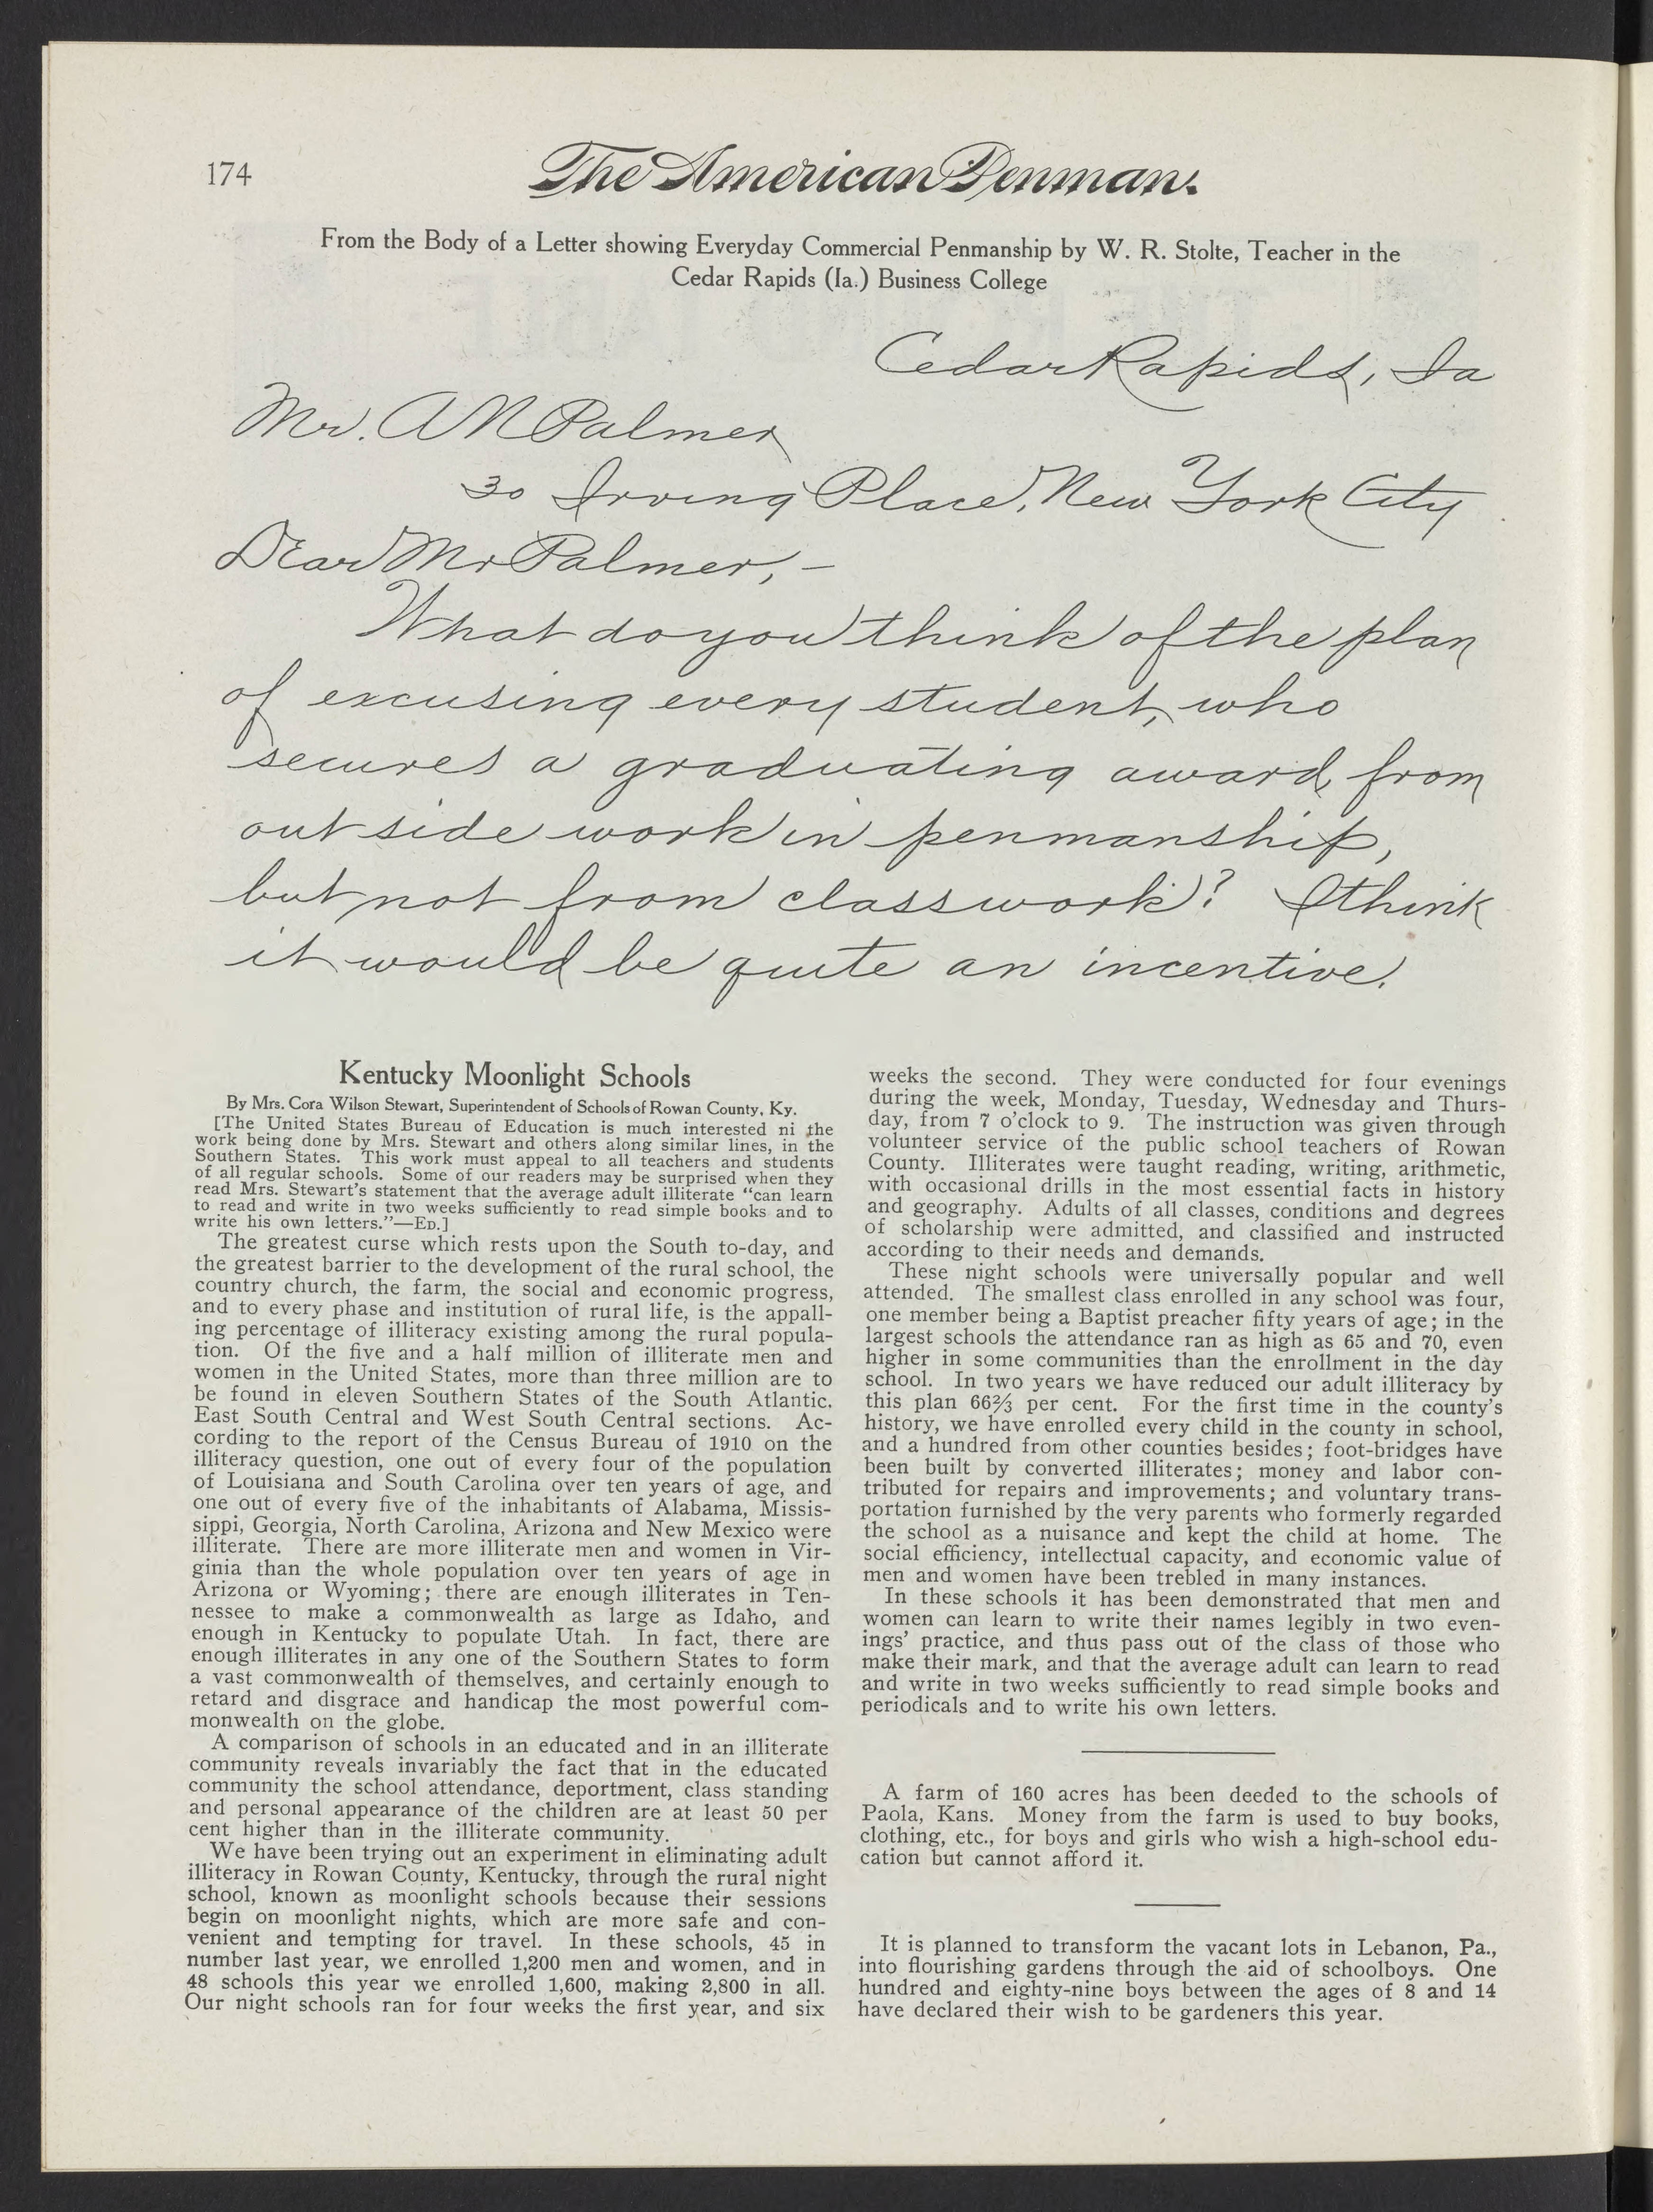 174
The American Penman.
From the Body of a Letter showing Everyday Commercial Penmanship by W. R. Stolte, Teacher in the
Cedar Rapids (Ia.) Business College
Cedar Rapids, Ia
Mr. A N Palmer
30 Irving Place, New York City
Dear Mr Palmer, –
What do you think of the plan
of excusing every student, who
secures a graduating award, from
outside work in penmanship,
but not from classwork? I think
it would be quite an incentive.
Kentucky Moonlight Schools
By Mrs. Cora Wilson Stewart, Superintendent of Schools of Rowan County, Ky.
[The United States Bureau of Education is much interested ni the
work being done by Mrs. Stewart and others along similar lines, in the
Southern States. This work must appeal to all teachers and students
of all regular schools. Some of our readers may be surprised when they
read Mrs. Stewart's statement that the average adult illiterate "can learn
to read and write in two weeks sufficiently to read simple books and to
write his own letters."—ED.]
The greatest curse which rests upon the South to-day, and
the greatest barrier to the development of the rural school, the
country church, the farm, the social and economic progress,
and to every phase and institution of rural life, is the appall-
ing percentage of illiteracy existing among the rural popula-
tion. Of the five and a half million of illiterate men and
women in the United States, more than three million are to
be found in eleven Southern States of the South Atlantic.
East South Central and West South Central sections. Ac-
cording to the report of the Census Bureau of 1910 on the
illiteracy question, one out of every four of the population
of Louisiana and South Carolina over ten years of age, and
one out of every five of the inhabitants of Alabama, Missis-
sippi, Georgia, North Carolina, Arizona and New Mexico were
illiterate. There are more illiterate men and women in Vir-
ginia than the whole population over ten years of age in
Arizona or Wyoming; there are enough illiterates in Ten-
nessee to make a commonwealth as large as Idaho, and
enough in Kentucky to populate Utah. In fact, there are
enough illiterates in any one of the Southern States to form
a vast commonwealth of themselves, and certainly enough to
retard and disgrace and handicap the most powerful com-
monwealth on the globe.
A comparison of schools in an educated and in an illiterate
community reveals invariably the fact that in the educated
community the school attendance, deportment, class standing
and personal appearance of the children are at least 50 per
cent higher than in the illiterate community.
We have been trying out an experiment in eliminating adult
illiteracy in Rowan County, Kentucky, through the rural night
school, known as moonlight schools because their sessions
begin on moonlight nights, which are more safe and con-
venient and tempting for travel. In these schools, 45 in
number last year, we enrolled 1,200 men and women, and in
48 schools this year we enrolled 1,600, making 2,800 in all.
Our night schools ran for four weeks the first year, and six
weeks the second. They were conducted for four evenings
during the week, Monday, Tuesday, Wednesday and Thurs-
day, from 7 o'clock to 9. The instruction was given through
volunteer service of the public school teachers of Rowan
County. Illiterates were taught reading, writing, arithmetic,
with occasional drills in the most essential facts in history
and geography. Adults of all classes, conditions and degrees
of scholarship were admitted, and classified and instructed
according to their needs and demands.
These night schools were universally popular and well
attended. The smallest class enrolled in any school was four,
one member being a Baptist preacher fifty years of age; in the
largest schools the attendance ran as high as 65 and 70, even
higher in some communities than the enrollment in the day
school. In two years we have reduced our adult illiteracy by
this plan 66⅔ per cent. For the first time in the county's
history, we have enrolled every child in the county in school,
and a hundred from other counties besides; foot-bridges have
been built by converted illiterates; money and labor con-
tributed for repairs and improvements; and voluntary trans-
portation furnished by the very parents who formerly regarded
the school as a nuisance and kept the child at home. The
social efficiency, intellectual capacity, and economic value of
men and women have been trebled in many instances.
In these schools it has been demonstrated that men and
women can learn to write their names legibly in two even-
ings' practice, and thus pass out of the class of those who
make their mark, and that the average adult can learn to read
and write in two weeks sufficiently to read simple books and
periodicals and to write his own letters.
A farm of 160 acres has been deeded to the schools of
Paola, Kans. Money from the farm is used to buy books,
clothing, etc., for boys and girls who wish a high-school edu-
cation but cannot afford it.
It is planned to transform the vacant lots in Lebanon, Pa.,
into flourishing gardens through the aid of schoolboys. One
hundred and eighty-nine boys between the ages of 8 and 14
have declared their wish to be gardeners this year.